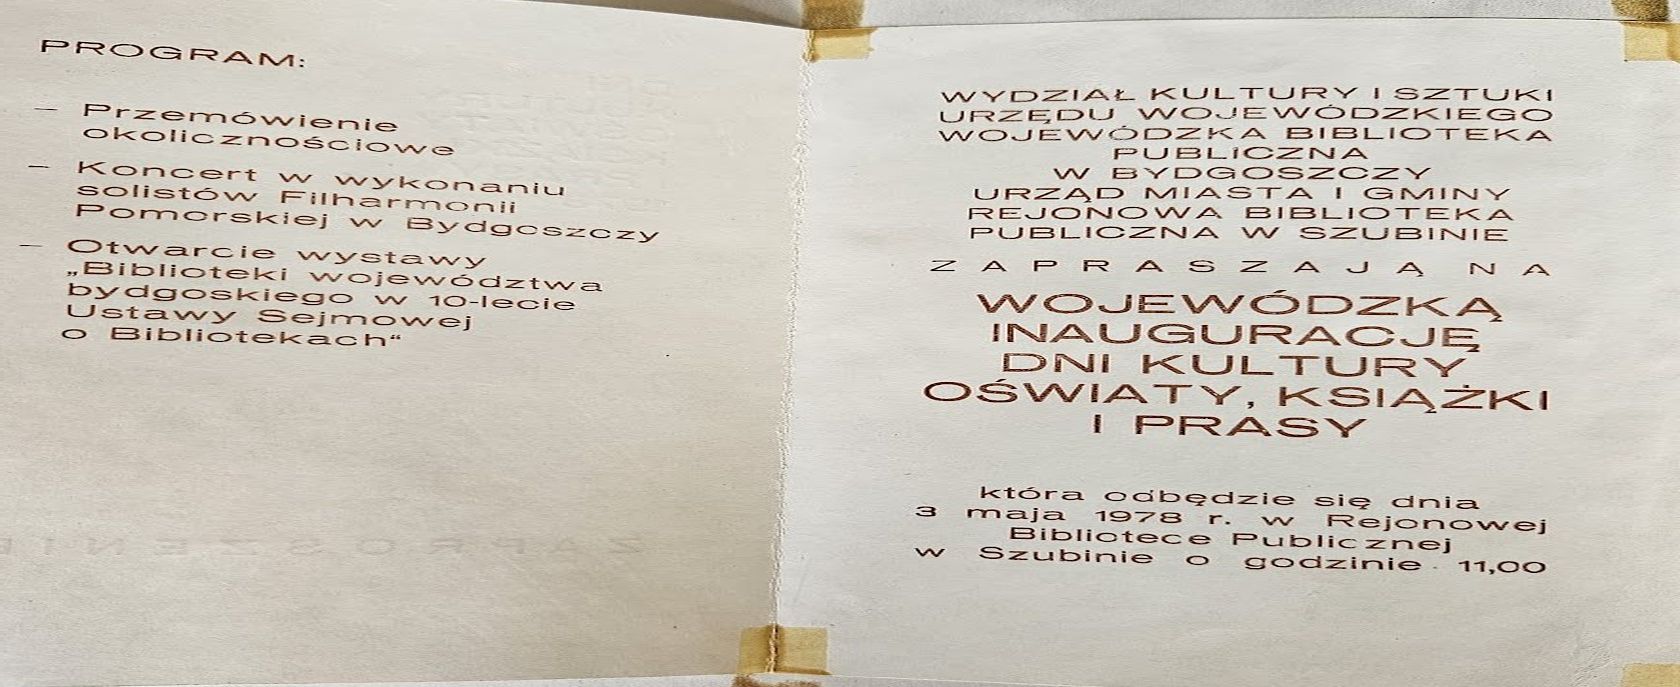 PROGRAM:
— Przemówienie
okolicznościowe
— Koncert w wykonaniu
solistów Filharmonii
Pomorskiej w Bydgoszczy
— Otwarcie wystawy
„Biblioteki województwa
bydgoskiego w 10-lecie
Ustawy Sejmowej
o Bibliotekach“
WYDZIAŁ KULTURY I SZTUKI
URZĘDU WOJEWÓDZKIEGO
WOJEWÓDZKA BIBLIOTEKA
PUBLICZNA
W BYDGOSZCZY
URZĄD MIASTA I GMINY
REJONOWA BIBLIOTEKA
PUBLICZNA W SZUBINIE
ZAPRASZAJĄ NA
WOJEWÓDZKĄ
INAUGURACJĘ
DNI KULTURY
OŚWIATY, KSIĄŻKI
I PRASY
która odbędzie się dnia
3 maja 1978 r. w Rejonowej
Bibliotece Publicznej
w Szubinie o godzinie 11,00